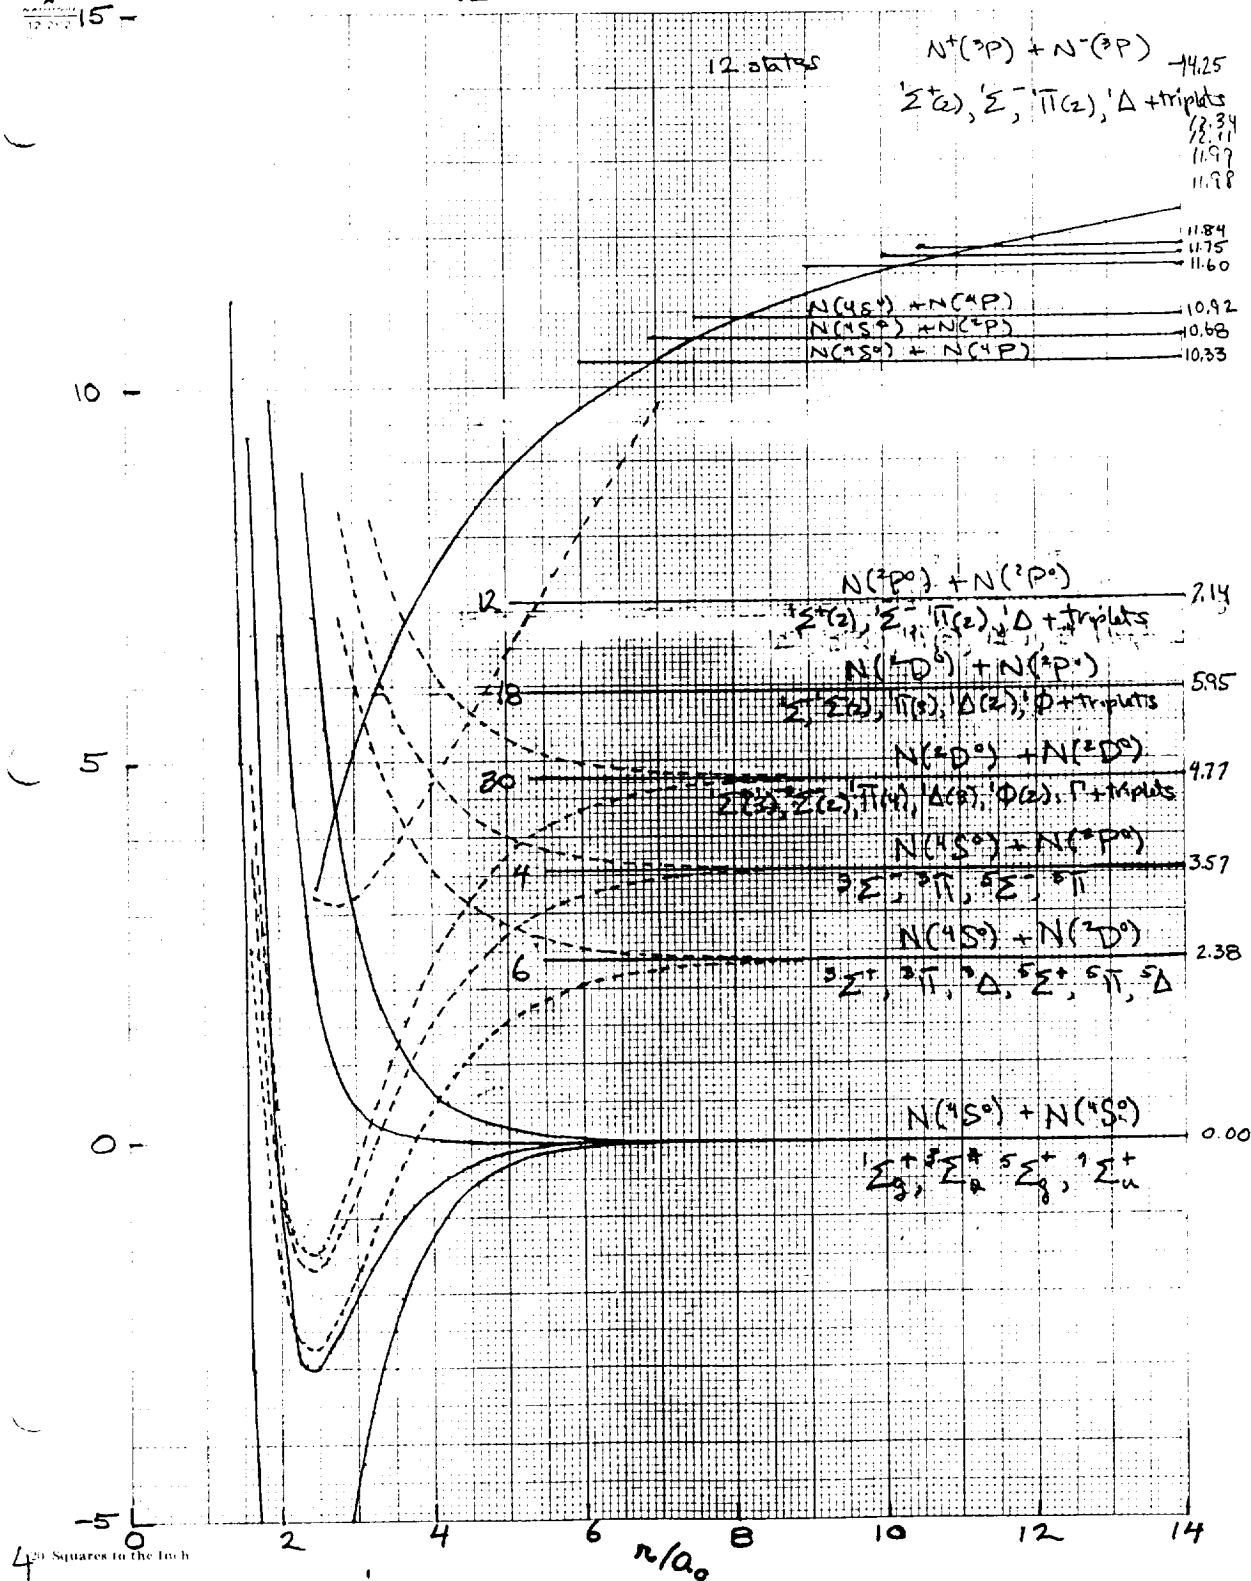 15
12 states
N⁺(³P) + N⁻(³P)
14.25
¹Σ⁺(2), ¹Σ⁻, ¹Π(2), ¹Δ + triplets
12.34
12.11
11.97
11.98
11.84
11.75
11.60
N(⁴S⁰) + N(⁴P)
10.92
N(⁴S⁰) + N(²P)
10.68
N(⁴S⁰) + N(⁴P)
10.33
10
N(²P⁰) + N(²P⁰)
12
7.14
¹Σ⁺(2), ¹Σ⁻, ¹Π(2), ¹Δ + triplets
N(²D⁰) + N(²P⁰)
18
5.95
Σ, Σ(2), ¹Π(3), ¹Δ(2), ¹Φ + triplets
5
N(²D⁰) + N(²D⁰)
30
4.77
Σ(3), Σ(2), ¹Π(4), ¹Δ(3), ¹Φ(2), Γ + triplets
N(⁴S⁰) + N(²P⁰)
4
3.57
³Σ⁻, ³Π, ⁵Σ⁻, ⁵Π
N(⁴S⁰) + N(²D⁰)
6
2.38
³Σ⁺, ³Π, ³Δ, ⁵Σ⁺, ⁵Π, ⁵Δ
N(⁴S⁰) + N(⁴S⁰)
0
0.00
¹Σg⁺, ³Σu⁺ ⁵Σg⁺, ⁷Σu⁺
-5
0 2 4 6 8 10 12 14
r/a₀
4
20 Squares to the Inch